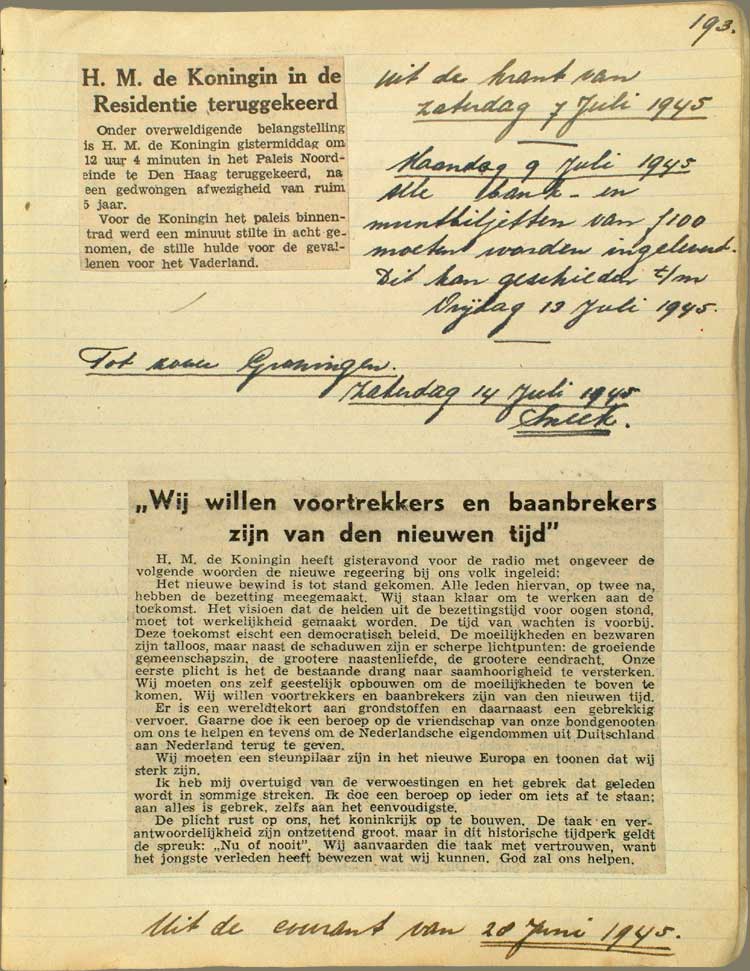 193.
H. M. de Koningin in de
Residentie teruggekeerd
Onder overweldigende belangstelling
is H. M. de Koningin gistermiddag om
12 uur 4 minuten in het Paleis Noord-
einde te Den Haag teruggekeerd, na
een gedwongen afwezigheid van ruim
5 jaar.
Voor de Koningin het paleis binnen-
trad werd een minuut stilte in acht ge-
nomen, de stille hulde voor de geval-
lenen voor het Vaderland.
Uit de krant van
Zaterdag 7 Juli 1945
Maandag 9 Juli 1945
Alle bank- en
muntbiljetten van ƒ100
moeten worden ingeleverd.
Dit kan geschieden t/m
Vrijdag 13 Juli 1945.
Tot zover Groningen.
Zaterdag 14 Juli 1945
Sneek.
„Wij willen voortrekkers en baanbrekers
zijn van den nieuwen tijd”
H. M. de Koningin heeft gisteravond voor de radio met ongeveer de
volgende woorden de nieuwe regeering bij ons volk ingeleid:
Het nieuwe bewind is tot stand gekomen. Alle leden hiervan, op twee na,
hebben de bezetting meegemaakt. Wij staan klaar om te werken aan de
toekomst. Het visioen dat de helden uit de bezettingstijd voor oogen stond,
moet tot werkelijkheid gemaakt worden. De tijd van wachten is voorbij.
Deze toekomst eischt een democratisch beleid. De moeilijkheden en bezwaren
zijn talloos, maar naast de schaduwen zijn er scherpe lichtpunten: de groeiende
gemeenschapszin, de grootere naastenliefde, de grootere eendracht. Onze
eerste plicht is het de bestaande drang naar saamhoorigheid te versterken.
Wij moeten ons zelf geestelijk opbouwen om de moeilijkheden te boven te
komen. Wij willen voortrekkers en baanbrekers zijn van den nieuwen tijd.
Er is een wereldtekort aan grondstoffen en daarnaast een gebrekkig
vervoer. Gaarne doe ik een beroep op de vriendschap van onze bondgenooten
om ons te helpen en tevens om de Nederlandsche eigendommen uit Duitschland
aan Nederland terug te geven.
Wij moeten een steunpilaar zijn in het nieuwe Europa en toonen dat wij
sterk zijn.
Ik heb mij overtuigd van de verwoestingen en het gebrek dat geleden
wordt in sommige streken. Ik doe een beroep op ieder om iets af te staan;
aan alles is gebrek, zelfs aan het eenvoudigste.
De plicht rust op ons, het koninkrijk op te bouwen. De taak en ver-
antwoordelijkheid zijn ontzettend groot, maar in dit historische tijdperk geldt
de spreuk: „Nu of nooit”. Wij aanvaarden die taak met vertrouwen, want
het jongste verleden heeft bewezen wat wij kunnen. God zal ons helpen.
Uit de courant van 28 Juni 1945.